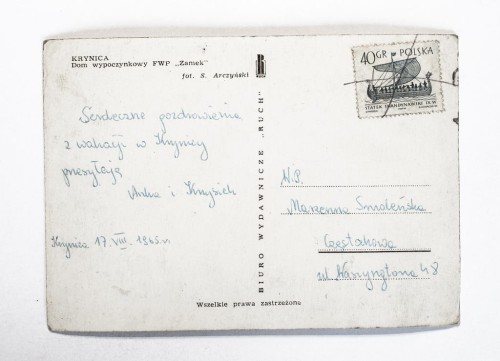 KRYNICA
Dom wypoczynkowy FWP „Zamek"
fot. S. Arczyński
40GR POLSKA
STATEK SKANDYNAWSKI IX W.
Serdeczne pozdrowienia
z wakacji w Krynicy
przesyłają
Anka i Krzysiek
Krynica 17.VIII.1965.r.
BIURO WYDAWNICZE „RUCH"
N.P.
Marzenna Smoleńska
Częstochowa
ul Waszyngtona 48
Wszelkie prawa zastrzeżone